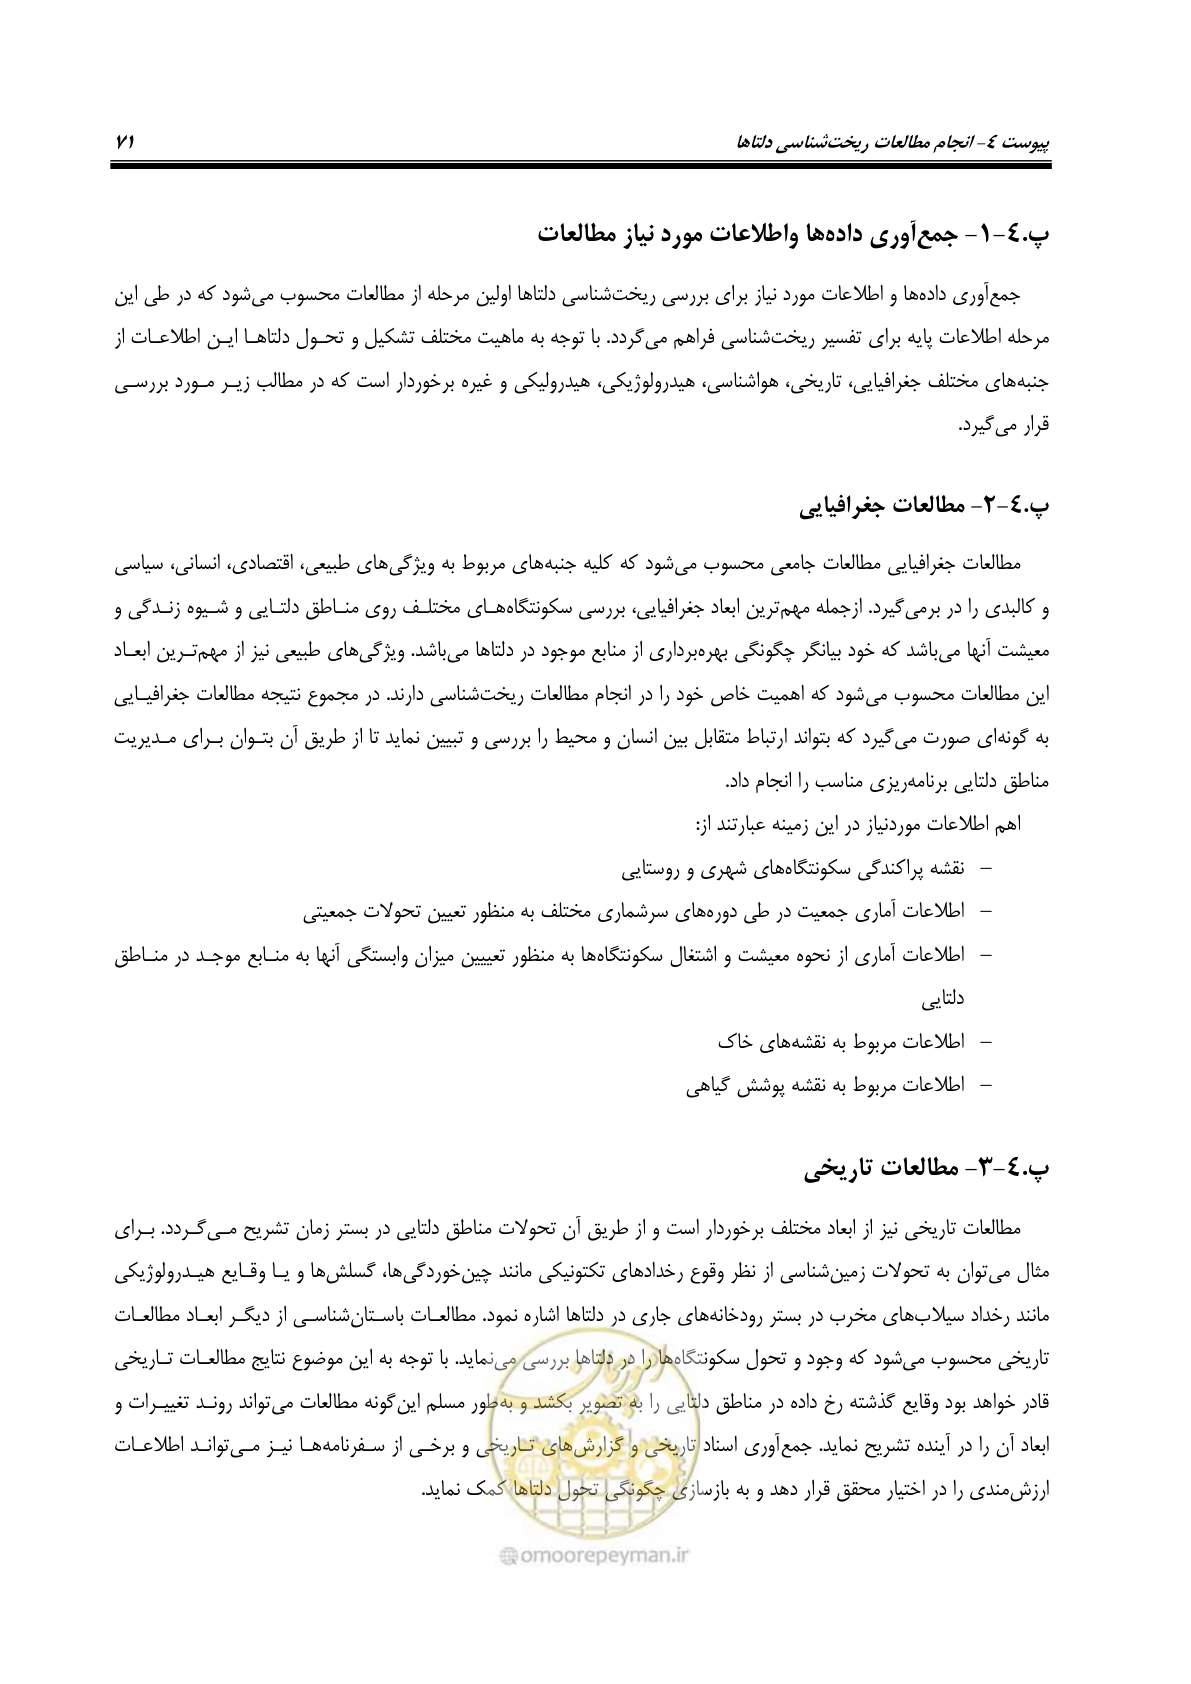 پیوست ٤- انجام مطالعات ریخت‌شناسی دلتاها
٧١
پ.٤-١- جمع‌آوری داده‌ها واطلاعات مورد نیاز مطالعات
جمع‌آوری داده‌ها و اطلاعات مورد نیاز برای بررسی ریخت‌شناسی دلتاها اولین مرحله از مطالعات محسوب می‌شود که در طی این
مرحله اطلاعات پایه برای تفسیر ریخت‌شناسی فراهم می‌گردد. با توجه به ماهیت مختلف تشکیل و تحول دلتاها این اطلاعات از
جنبه‌های مختلف جغرافیایی، تاریخی، هواشناسی، هیدرولوژیکی، هیدرولیکی و غیره برخوردار است که در مطالب زیر مورد بررسی
قرار می‌گیرد.
پ.٤-٢- مطالعات جغرافیایی
مطالعات جغرافیایی مطالعات جامعی محسوب می‌شود که کلیه جنبه‌های مربوط به ویژگی‌های طبیعی، اقتصادی، انسانی، سیاسی
و کالبدی را در برمی‌گیرد. ازجمله مهم‌ترین ابعاد جغرافیایی، بررسی سکونتگاه‌های مختلف روی مناطق دلتایی و شیوه زندگی و
معیشت آنها می‌باشد که خود بیانگر چگونگی بهره‌برداری از منابع موجود در دلتاها می‌باشد. ویژگی‌های طبیعی نیز از مهم‌ترین ابعاد
این مطالعات محسوب می‌شود که اهمیت خاص خود را در انجام مطالعات ریخت‌شناسی دارند. در مجموع نتیجه مطالعات جغرافیایی
به گونه‌ای صورت می‌گیرد که بتواند ارتباط متقابل بین انسان و محیط را بررسی و تبیین نماید تا از طریق آن بتوان برای مدیریت
مناطق دلتایی برنامه‌ریزی مناسب را انجام داد.
اهم اطلاعات موردنیاز در این زمینه عبارتند از:
– نقشه پراکندگی سکونتگاه‌های شهری و روستایی
– اطلاعات آماری جمعیت در طی دوره‌های سرشماری مختلف به منظور تعیین تحولات جمعیتی
– اطلاعات آماری از نحوه معیشت و اشتغال سکونتگاه‌ها به منظور تعییین میزان وابستگی آنها به منابع موجد در مناطق
دلتایی
– اطلاعات مربوط به نقشه‌های خاک
– اطلاعات مربوط به نقشه پوشش گیاهی
پ.٤-٣- مطالعات تاریخی
مطالعات تاریخی نیز از ابعاد مختلف برخوردار است و از طریق آن تحولات مناطق دلتایی در بستر زمان تشریح می‌گردد. برای
مثال می‌توان به تحولات زمین‌شناسی از نظر وقوع رخدادهای تکتونیکی مانند چین‌خوردگی‌ها، گسلش‌ها و یا وقایع هیدرولوژیکی
مانند رخداد سیلاب‌های مخرب در بستر رودخانه‌های جاری در دلتاها اشاره نمود. مطالعات باستان‌شناسی از دیگر ابعاد مطالعات
تاریخی محسوب می‌شود که وجود و تحول سکونتگاه‌ها را در دلتاها بررسی می‌نماید. با توجه به این موضوع نتایج مطالعات تاریخی
قادر خواهد بود وقایع گذشته رخ داده در مناطق دلتایی را به تصویر بکشد و به‌طور مسلم این‌گونه مطالعات می‌تواند روند تغییرات و
ابعاد آن را در آینده تشریح نماید. جمع‌آوری اسناد تاریخی و گزارش‌های تاریخی و برخی از سفرنامه‌ها نیز می‌تواند اطلاعات
ارزش‌مندی را در اختیار محقق قرار دهد و به بازسازی چگونگی تحول دلتاها کمک نماید.
امور پیمان
@omoorepeyman.ir